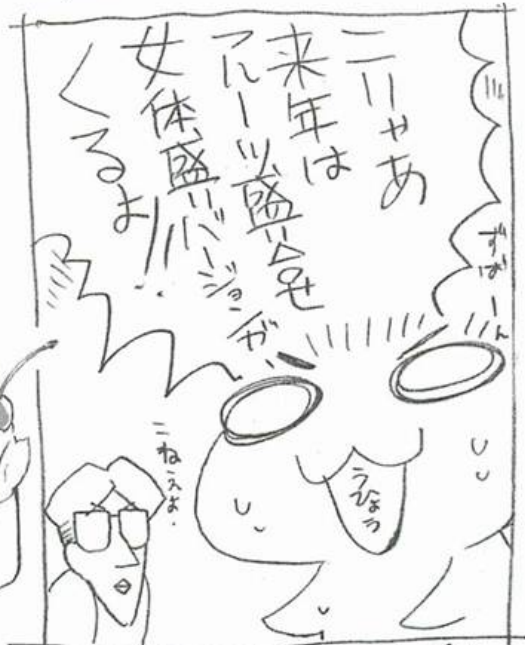 こりゃあ
来年は
フルーツ盛り合せ
女体盛りバージョンが、
くるよ!!
ずばーん
うひょう
こねぇよ。